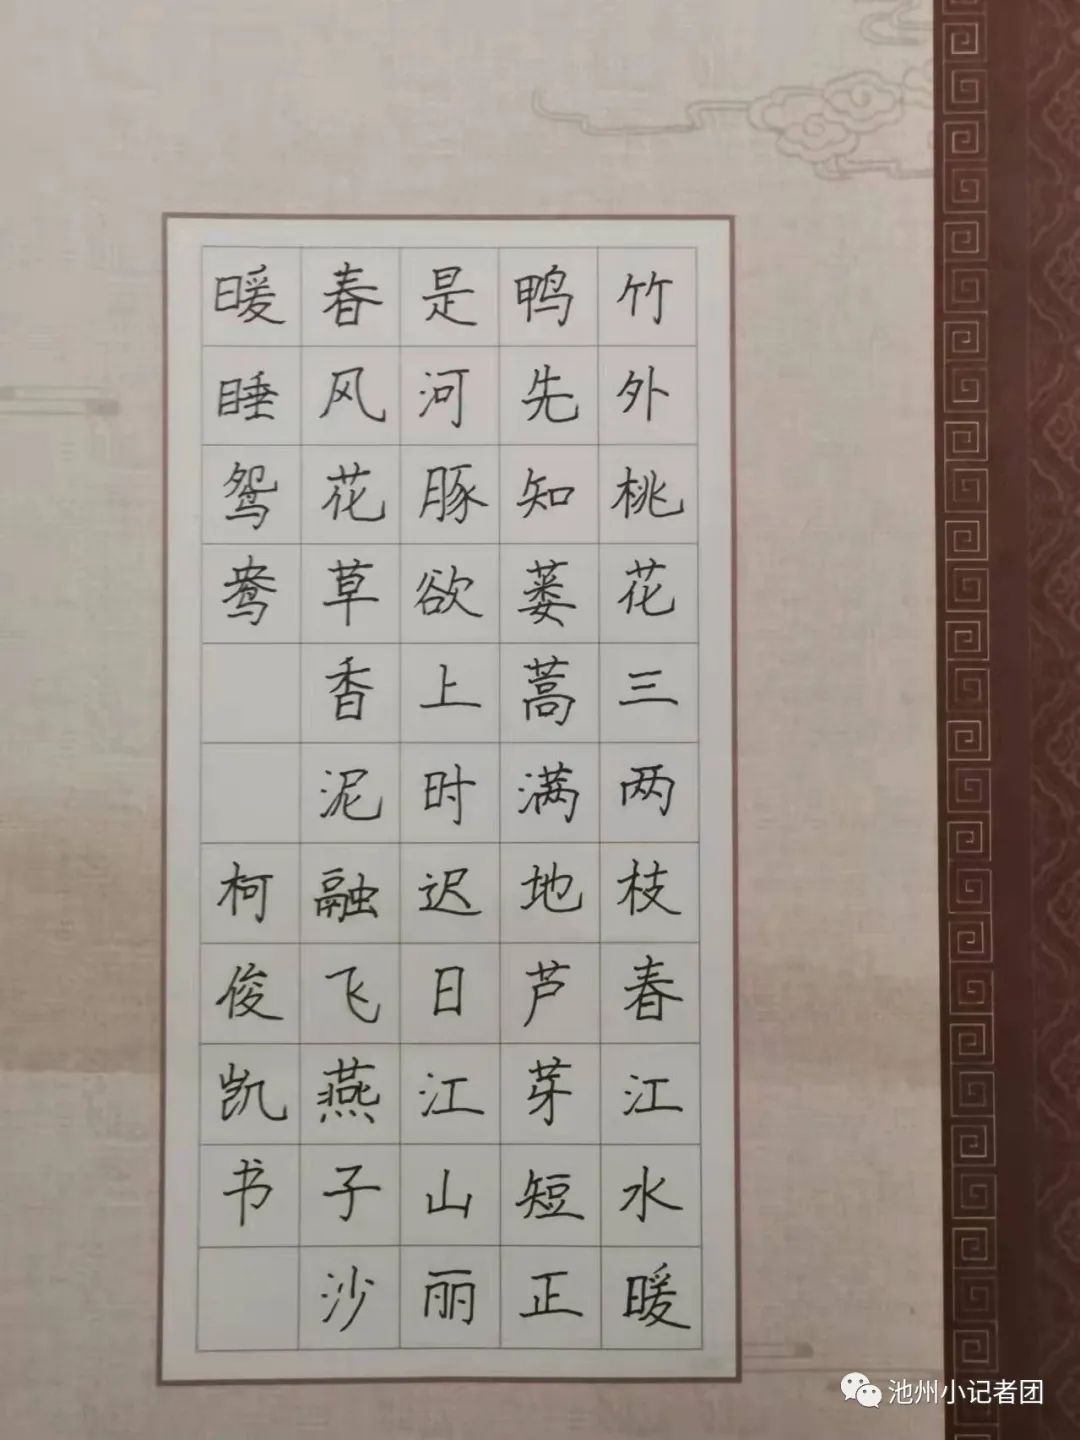 竹外桃花三两枝春江水暖
鸭先知蒌蒿满地芦芽短正
是河豚欲上时迟日江山丽
春风花草香泥融飞燕子沙
暖睡鸳鸯 柯俊凯书
池州小记者团